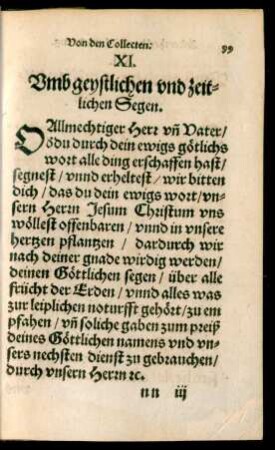 Von den Collecten. 99
XI.
Vmb geystlichen vnd zeit-
lichen Segen.
O Allmechtiger Herr vn̄ Vater/
du durch dein ewigs götlichs
wort alle ding erschaffen hast/
segnest/ vnnd erheltest/ wir bitten
dich/ das du dein ewigs wort/ vn-
sern Herrn Jesum Christum vns
wöllest offenbaren/ vnnd in vnsere
hertzen pflantzen/ dardurch wir
nach deiner gnade wirdig werden/
deinen Göttlichen segen/ über alle
frücht der Erden/ vnnd alles was
zur leiplichen noturfft gehört/ zu em
pfahen/ vn̄ soliche gaben zum preiß
deines Göttlichen namens vnd vn-
sers nechsten dienst zu gebrauchen/
durch vnsern Herrn ꝛc.
nn iij